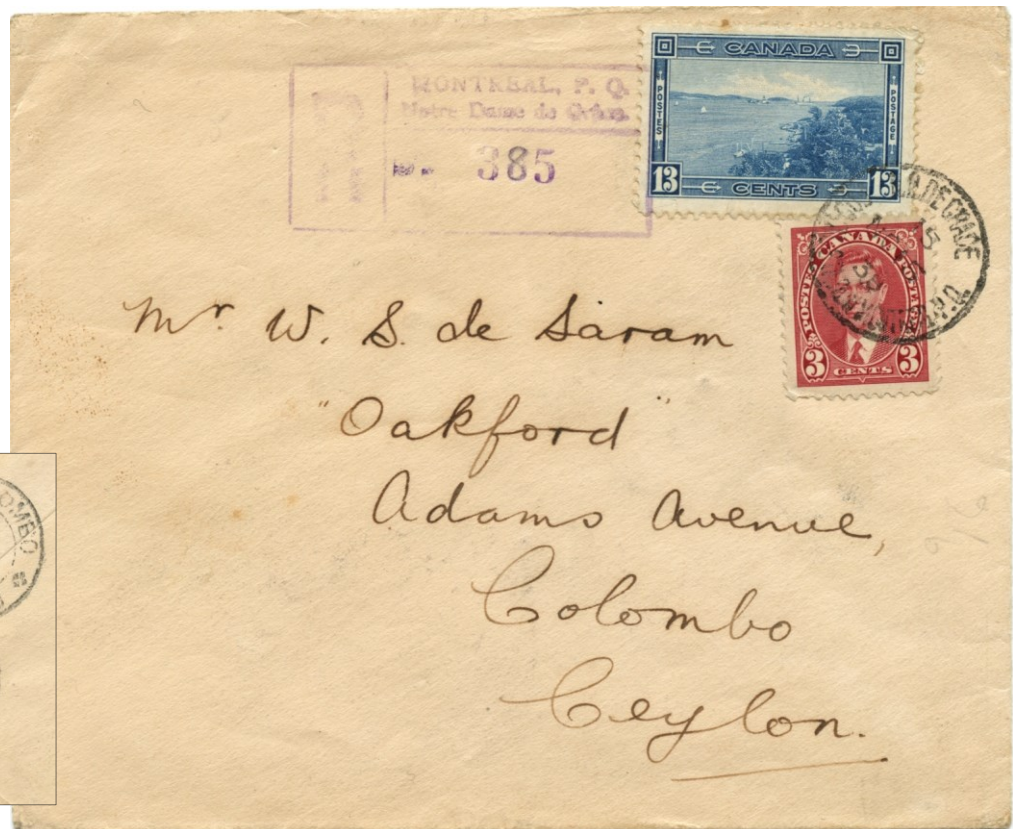 MONTREAL, P. Q.
Notre Dame de Grâce.
385
CANADA
POSTES
POSTAGE
13 CENTS 13
N.D. DE GRACE
15
39
POSTES CANADA POSTAGE
3 CENTS 3
Mr. W. S. de Saram
"Oakford"
Adams Avenue,
Colombo
Ceylon.
OMBO